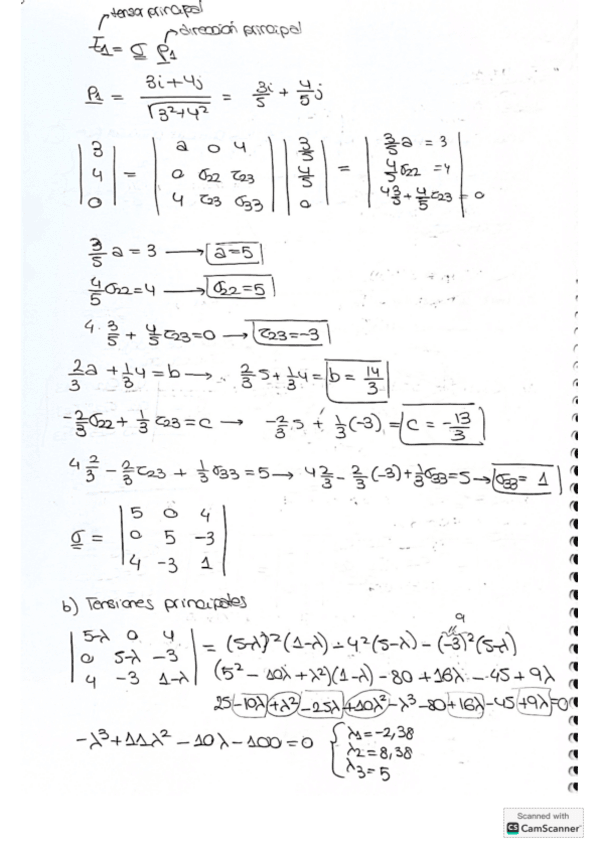 tensor principal
dirección principal
t1 = σ p1
p1 = (3i+4j)/√(3²+4²) = 3i/5 + 4/5 j
|3| = |a 0 4| |3/5| = |3/5 a = 3|
|4| = |0 σ22 τ23| |4/5| = |4/5 σ22 = 4|
|0| = |4 τ23 σ33| |0| = |4 3/5 + 4/5 τ23 = 0|
3/5 a = 3 → a=5
4/5 σ22=4 → σ22=5
4·3/5 + 4/5 τ23=0 → τ23=-3
2/3 a + 1/3 4 = b → 2/3 5 + 1/3 4 = b = 14/3
-2/3 σ22 + 1/3 τ23 = c → -2/3·5 + 1/3(-3) = c = -13/3
4 2/3 - 2/3 τ23 + 1/3 σ33 = 5 → 4 2/3 - 2/3(-3) + 1/3 σ33 = 5 → σ33 = 1
σ = |5 0 4|
|0 5 -3|
|4 -3 1|
b) Tensiones principales
9
|5-λ 0 4| = (5-λ)²(1-λ) - 4²(5-λ) - (-3)²(5-λ)
|0 5-λ -3|
|4 -3 1-λ| (5² - 10λ + λ²)(1-λ) - 80 + 16λ - 45 + 9λ
25 - 10λ + λ² - 25λ + 10λ² - λ³ - 80 + 16λ - 45 + 9λ = 0
-λ³ + 11λ² - 10λ - 100 = 0 { λ1 = -2,38
λ2 = 8,38
λ3 = 5
Scanned with
CS CamScanner